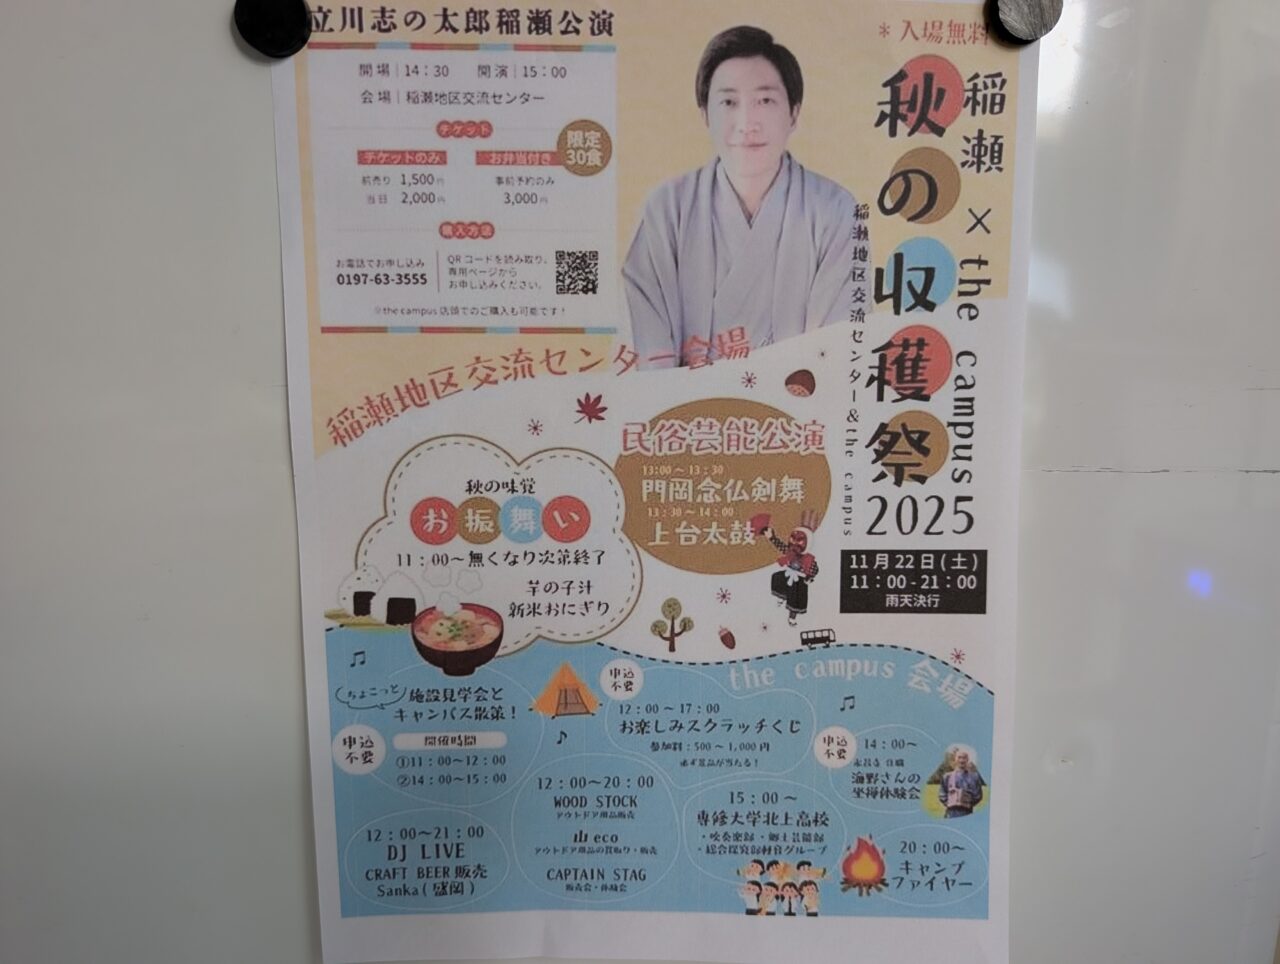 立川志の太郎稲瀬公演
開場｜14：30　開演｜15：00
会場｜稲瀬地区交流センター
チケット
限定
30食
チケットのみ
前売り 1,500円
当日 2,000円
お弁当付き
事前予約のみ
3,000円
購入方法
お電話でお申し込み
0197-63-3555
QRコードを読み取り、
専用ページから
お申し込みください。
※the campus 店頭でのご購入も可能です！
＊入場無料
稲瀬 × the campus
秋の収穫祭
2025
稲瀬地区交流センター&the campus
11月22日(土)
11：00-21：00
雨天決行
稲瀬地区交流センター会場
秋の味覚
お振舞い
11：00～無くなり次第終了
芋の子汁
新米おにぎり
民俗芸能公演
13:00～13:30
門岡念仏剣舞
13:30～14:00
上台太鼓
the campus 会場
ちょこっと
施設見学会と
キャンパス散策！
申込
不要
開催時間
①11：00～12：00
②14：00～15：00
申込
不要
12：00～17：00
お楽しみスクラッチくじ
参加料：500～1,000円
必ず景品が当たる！
申込
不要
14：00～
海野さんの
坐禅体験会
12：00～20：00
WOOD STOCK
アウトドア用品販売
山eco
アウトドア用品の買取り・販売
CAPTAIN STAG
販売会・体験会
15：00～
専修大学北上高校
・吹奏楽部・郷土芸能部
・総合探究部軽音グループ
12：00～21：00
DJ LIVE
CRAFT BEER 販売
Sanka(盛岡)
20：00～
キャンプ
ファイヤー